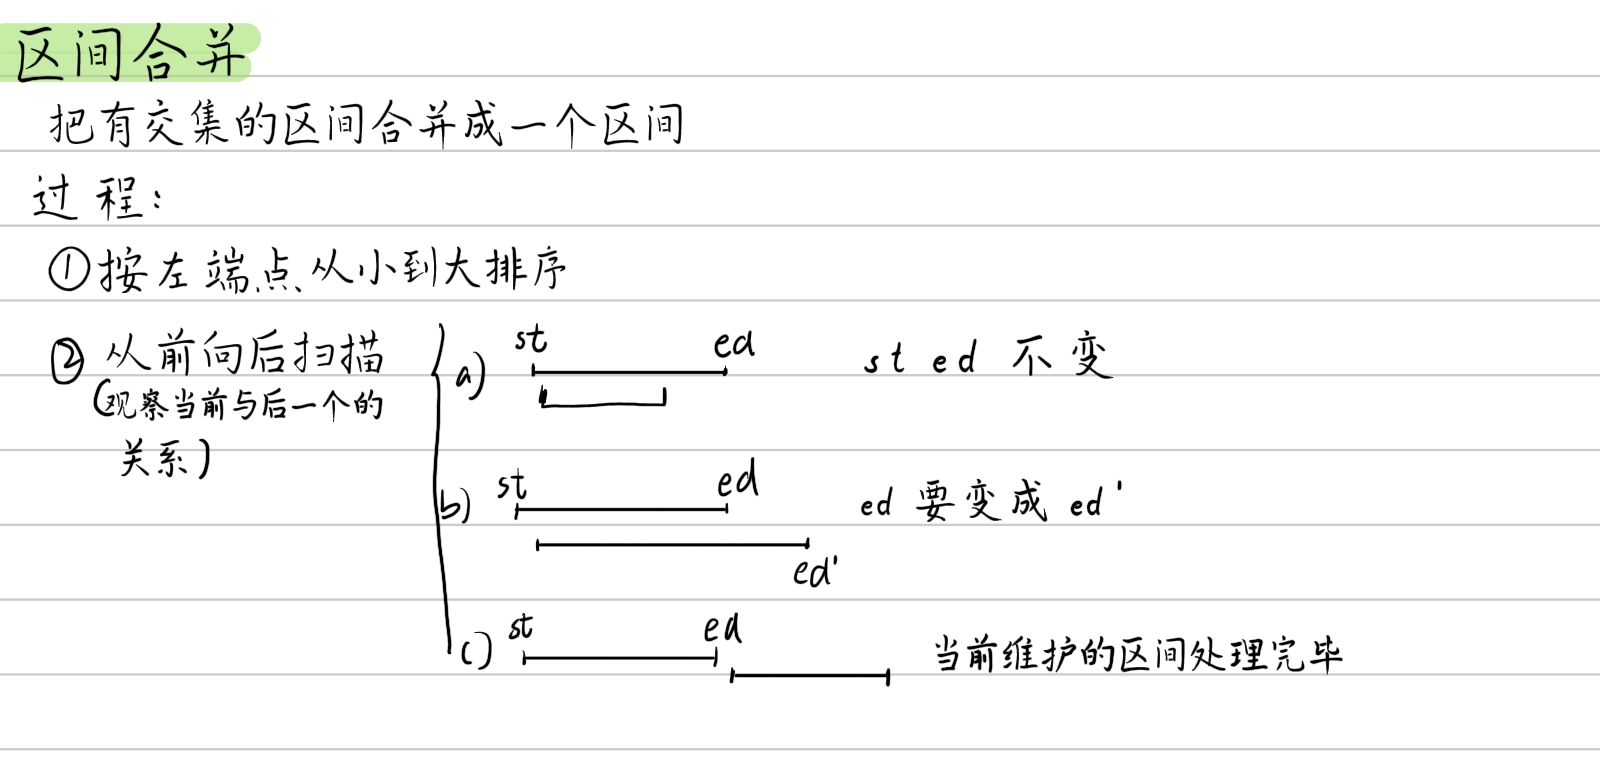 区间合并
把有交集的区间合并成一个区间
过程:
①按左端点从小到大排序
②从前向后扫描
(观察当前与后一个的
关系)
a) st ed st ed 不变
b) st ed ed 要变成 ed'
ed'
c) st ed 当前维护的区间处理完毕